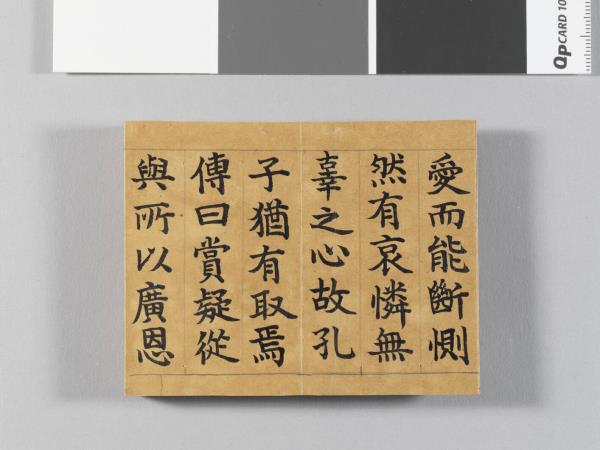 愛而能斷惻
然有哀憐無
辜之心故孔
子猶有取焉
傳曰賞疑從
與所以廣恩
QpCARD 10